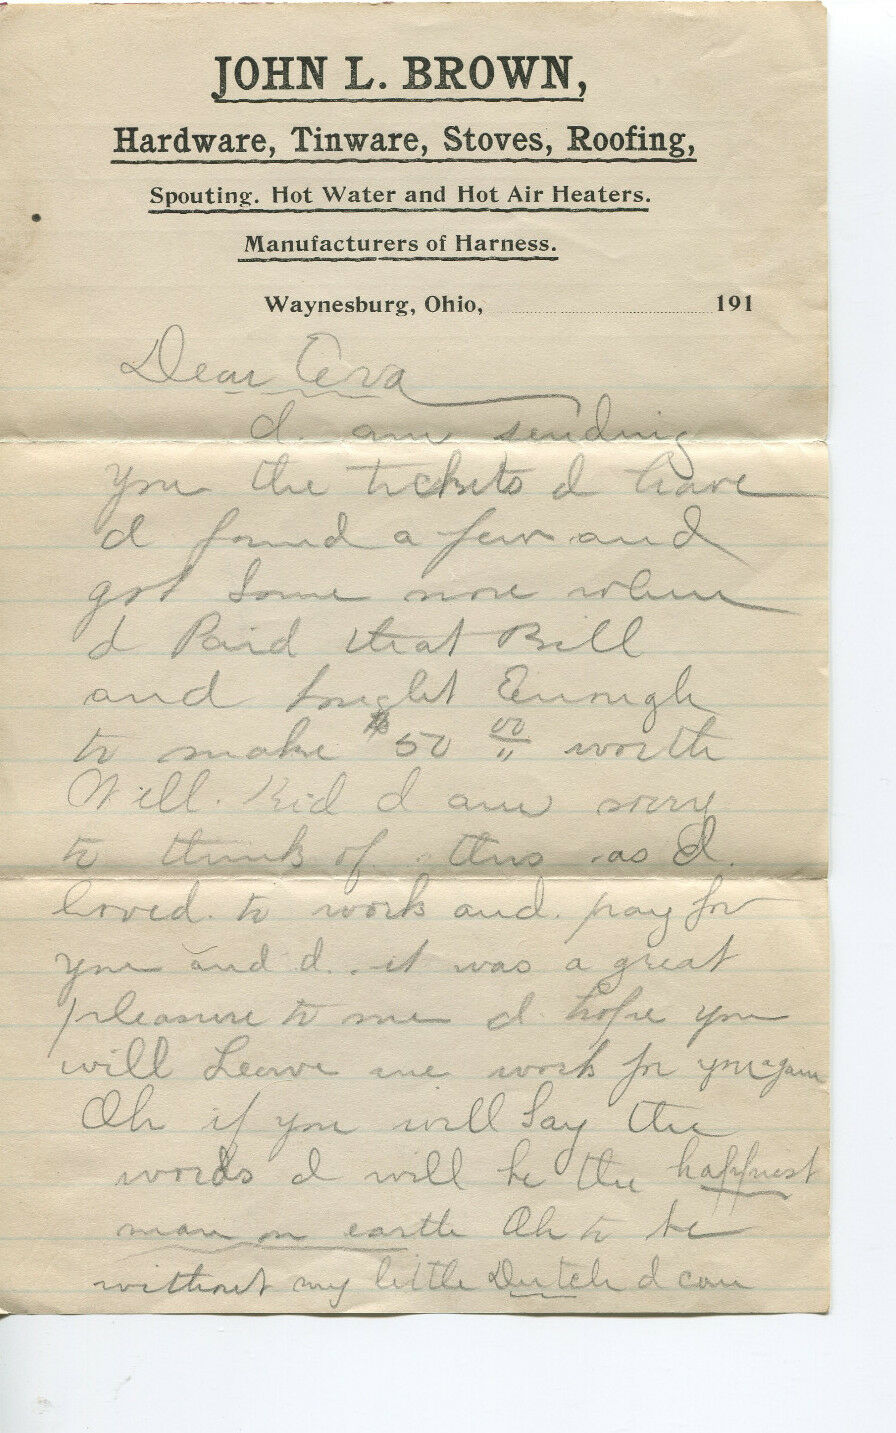 JOHN L. BROWN,
Hardware, Tinware, Stoves, Roofing,
Spouting. Hot Water and Hot Air Heaters.
Manufacturers of Harness.
Waynesburg, Ohio, 191
Dear Orva
I am sending
you the tickets I have
I found a few and
got Some more when
I Paid that Bill
and bought Enough
to make $50 00 worth
Well. Kid I am sorry
to think of this as I.
loved. to work and. pay for
you and I.. it was a great
pleasure to me I hope you
will Leave me work for you again
Oh if you will Say the
words I will be the happiest
man on earth Oh to be
without my little Dutch I can